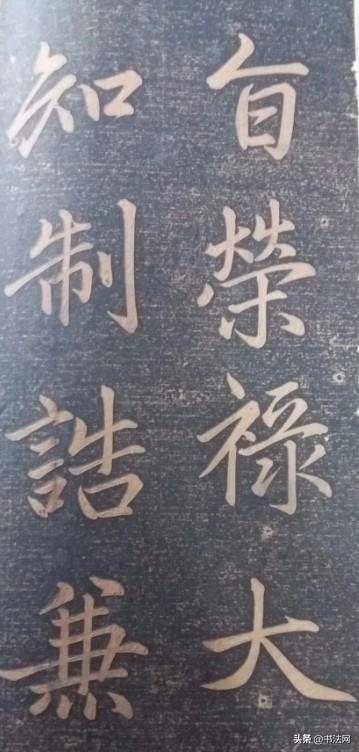 旨榮祿大
知制誥兼
头条 @书法网